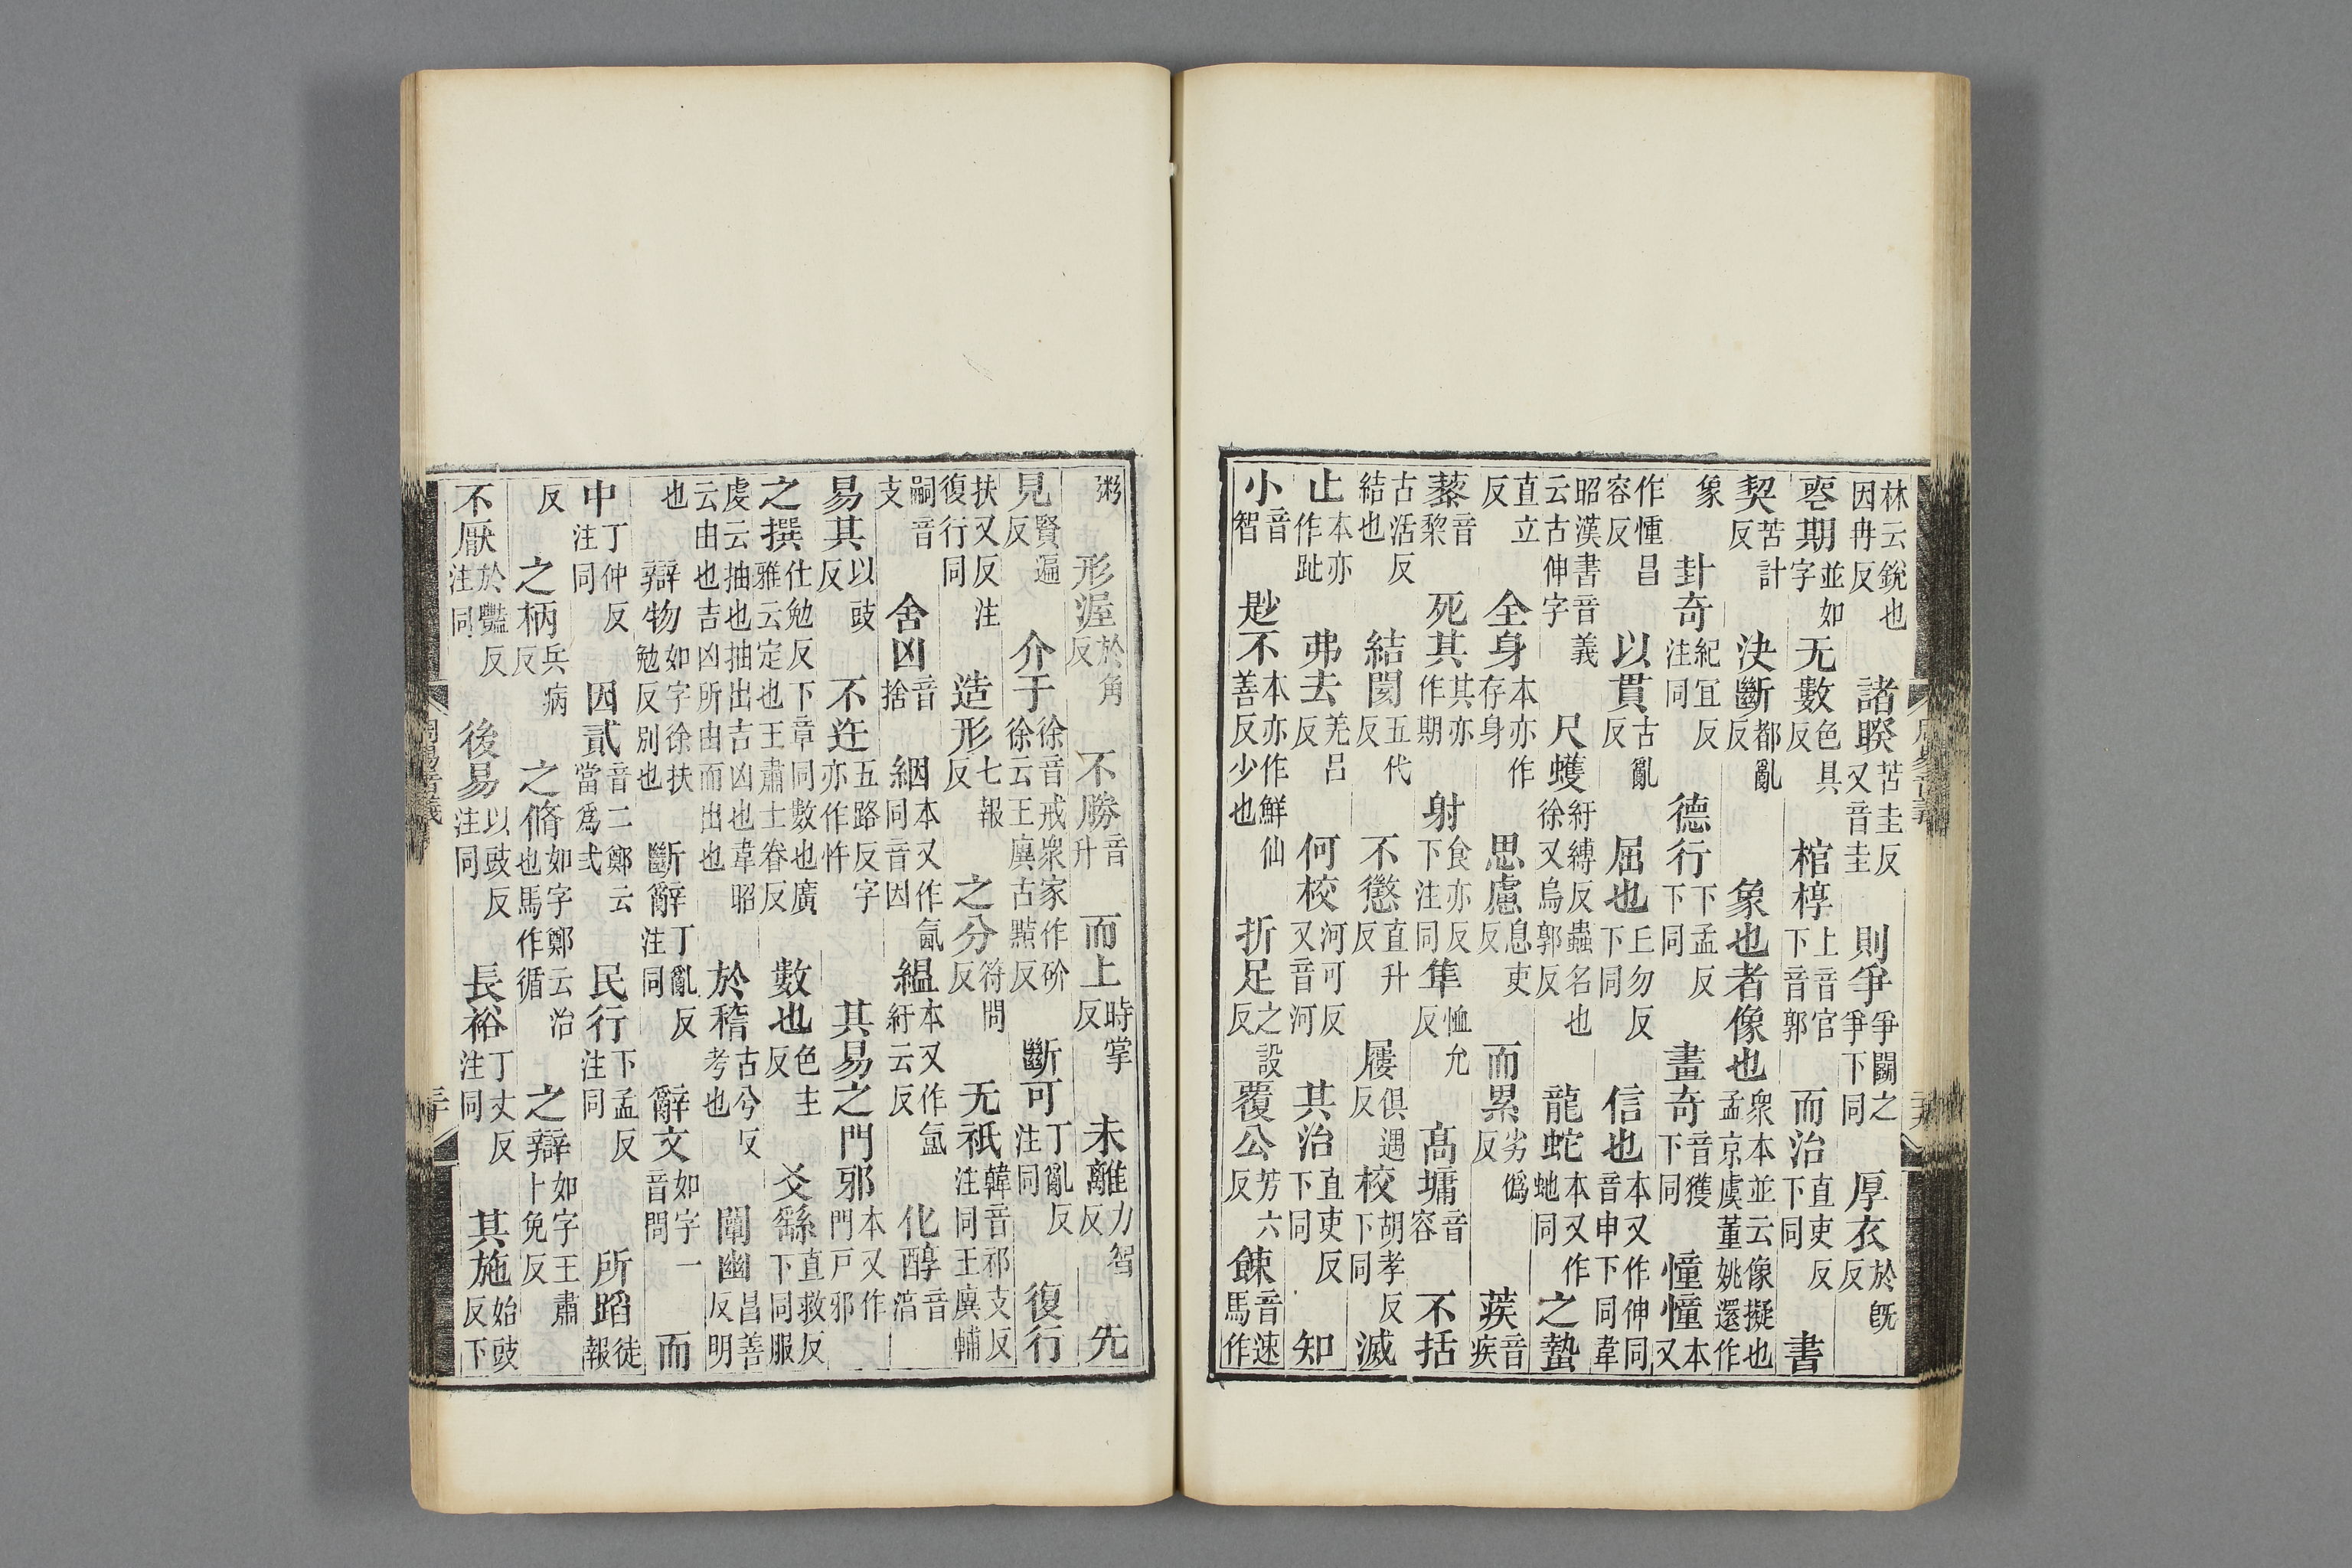 林云銳也因冉反 諸睽苦圭反又音圭 則爭爭鬬之爭下同 厚衣於旣反
䘮期並如字 无數色具反 棺椁上音官下音郭 而治直吏反下同 書
契苦計反 決斷都亂反 象也者像也衆本並云像擬也孟京虞董姚還作
象 卦奇紀冝反注同 德行下孟反下同 畫奇音獲下同 憧憧本又
作㣫昌容反 以貫古亂反 屈也丘勿反下同 信也本又作伸同音申下同韋
昭漢書音義云古伸字 尺蠖紆縛反蟲名也徐又烏郭反 龍蛇本又作虵同 之蟄
直立反 全身本亦作存身 思慮息吏反 而累劣僞反 蒺音疾
藜音黎 死其其亦作期 射食亦反下注同 隼恤允反 高墉音容 不括
古活反結也 結閡五代反 不懲直升反 屨俱遇反 校胡孝反下同 滅
止本亦作趾 弗去羌呂反 何校河可反又音河 其治直吏反下同 知
小音智 尟不本亦作鮮仙善反少也 折足之設反 覆公芳六反 餗音速馬作
粥 形渥於角反 不勝音升 而上時掌反 未離力智反 先
見賢遍反 介于徐音戒衆家作砎徐云王廙古黠反 斷可丁亂反注同 復行
扶又反注復行同 造形七報反 之分符問反 无祇韓音祁支反注同王廙輔
嗣音支 舍凶音捨 絪本又作氤同音因 縕本又作氳紆云反 化醇音湻
易其以豉反 不迕五路反字亦作忤 其易之門邪本又作門戸邪
之撰仕勉反下章同數也廣雅云定也王肅士眷反 數也色主反 爻繇直救反下同服
虔云抽也抽出吉凶也韋昭云由也吉凶所由而出也 於稽古兮反考也 闡幽昌善反明
也 辯物如字徐扶勉反別也 斷辭丁亂反注同 辭文如字一音問 而
中丁仲反注同 因貳音二鄭云當爲弍 民行下孟反注同 所蹈徒報
反 之柄兵病反 之脩如字鄭云治也馬作循 之辯如字王肅卜免反
不厭於豔反注同 後易以豉反注同 長裕丁丈反注同 其施始豉反下
周易音義